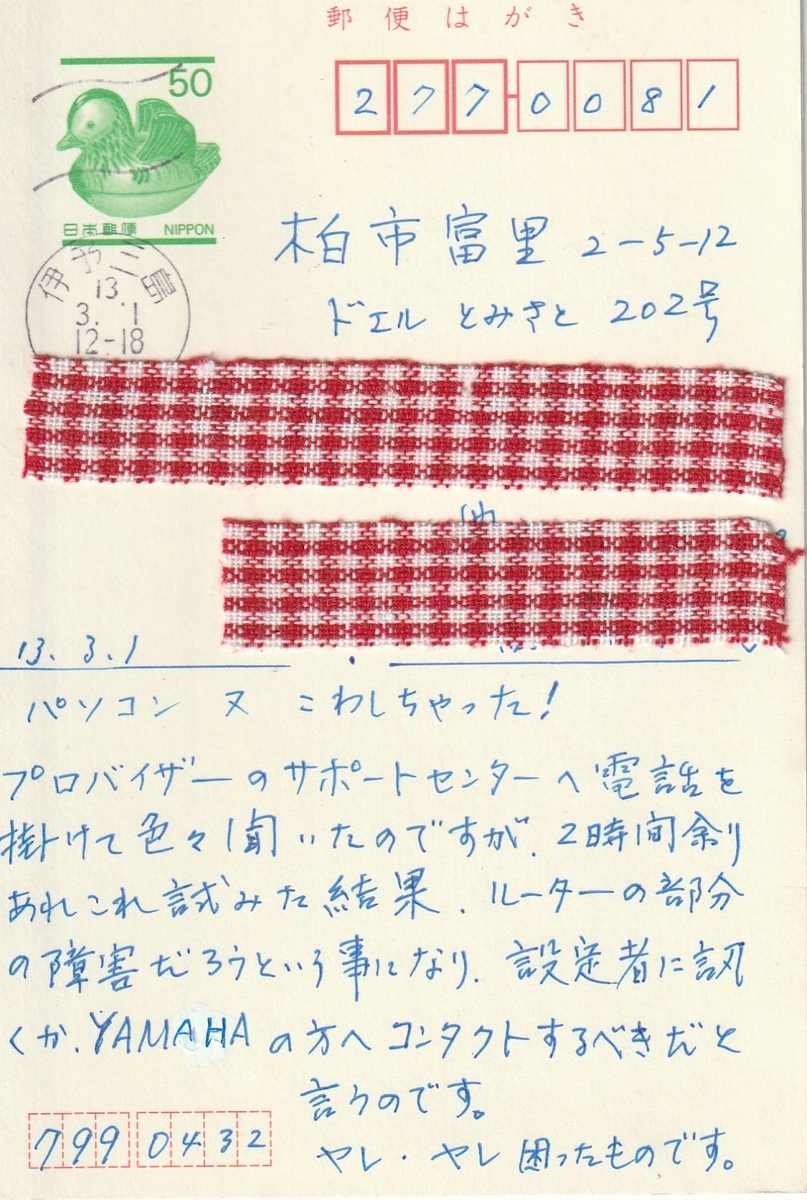 郵便はがき
50
日本郵便 NIPPON
277-0081
伊予三島
13.
3. 1
12-18
柏市富里 2-5-12
ドエル とみさと 202号
13.3.1
パソコン 又 こわしちゃった!
プロバイザーのサポートセンターへ電話を
掛けて色々聞いたのですが、2時間余り
あれこれ試みた結果、ルーターの部分
の障害だろうという事になり、設定者に訊
くか、YAMAHAの方へコンタクトするべきだと
言うのです。
ヤレ・ヤレ 困ったものです。
799 0432